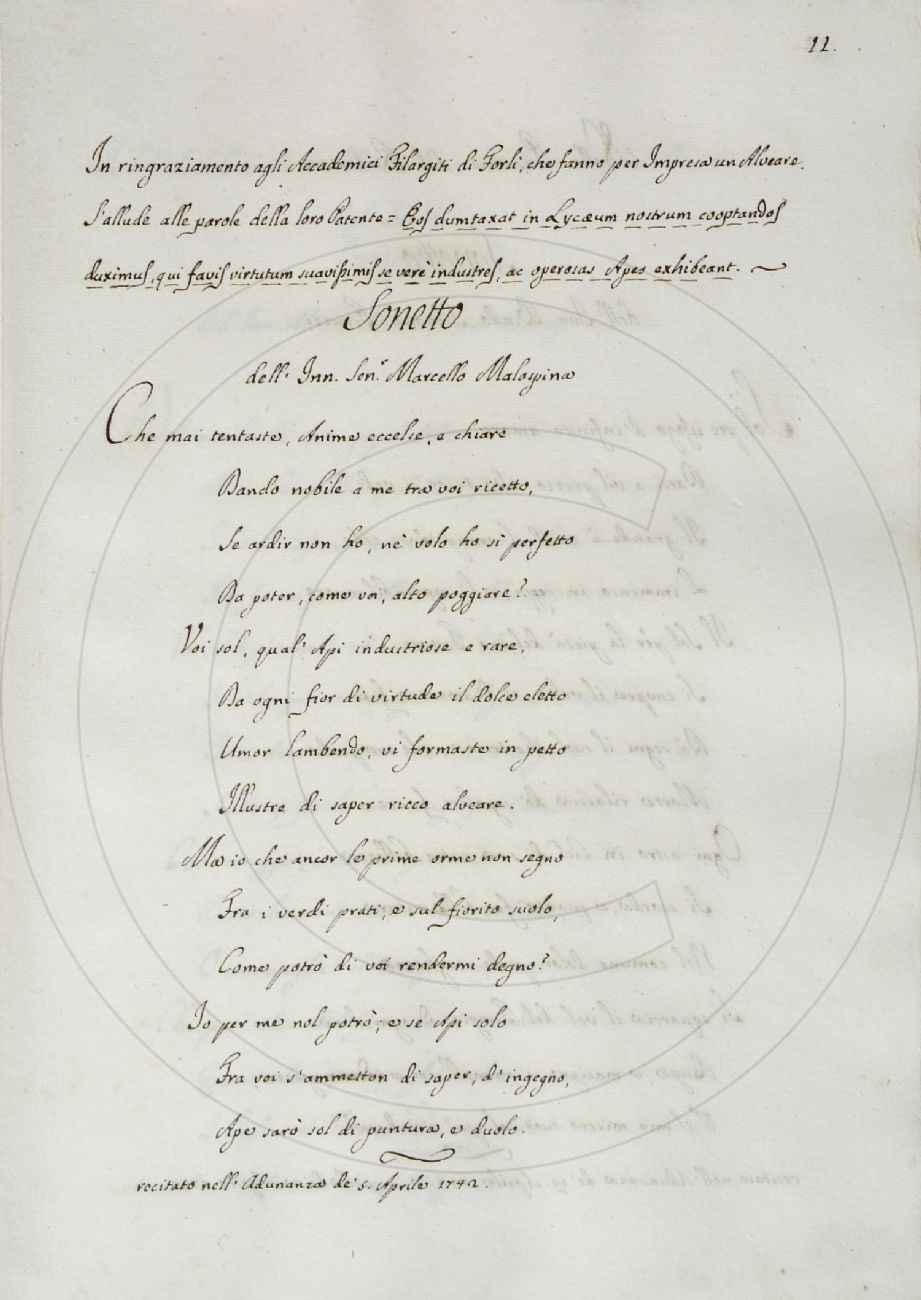 11.
In ringraziamento agli Accademici Filargiti di Forlì, che fanno per Impresa un Alveare.
S'allude alle parole della loro Patente = Eos dumtaxat in Lycæum nostrum cooptandos
duximus, qui favis virtutum suavissimis se verè industres, ac operosas Apes exhibeant. ~
Sonetto
dell' Inn. Sen.r Marcello Malaspina
Che mai tentaste, Anime eccelse, e chiare
Dando nobile a me tra voi ricetto,
Se ardir non ho, nè volo ho sì perfetto
Da poter, come voi, alto poggiare?
Voi sol, qual' Api industriose e rare,
Da ogni fior di virtude il dolce eletto
Umor lambendo, vi formaste in petto
Illustre di saper ricco alveare.
Ma io che ancor le prime orme non segno
Fra i verdi prati, e sul fiorito suolo,
Come potrò di voi rendermi degno?
Io per me nol potrò; e se Api solo
Fra voi s'ammetton di saper, d'ingegno,
Ape sarò sol di puntura, e duolo.
recitato nell' Adunanza de' 5. Aprile 1742.